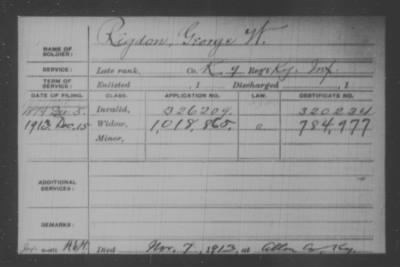 Rigdon, George W.
NAME OF SOLDIER:
SERVICE: Late rank, Co. K, 9 Reg't Ky. Inf.
TERM OF SERVICE: Enlisted , 1 Discharged , 1
DATE OF FILING. CLASS. APPLICATION NO. LAW. CERTIFICATE NO.
1879 5. Invalid, 326209. 320234
1913. Dec. 15 Widow, 1,018,865. 784,977
Minor,
ADDITIONAL SERVICES:
REMARKS:
Died Nov. 7, 1913, at Allen Co. Ky.